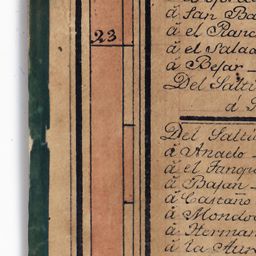 á San Ba
23
á el Ranc
á el Salad
á Bejar
Del Salti
á
Del Saltil
á Anado
á el Tanque
á Bajan
á Castaño
á Mondo
á Herman
á la Aur